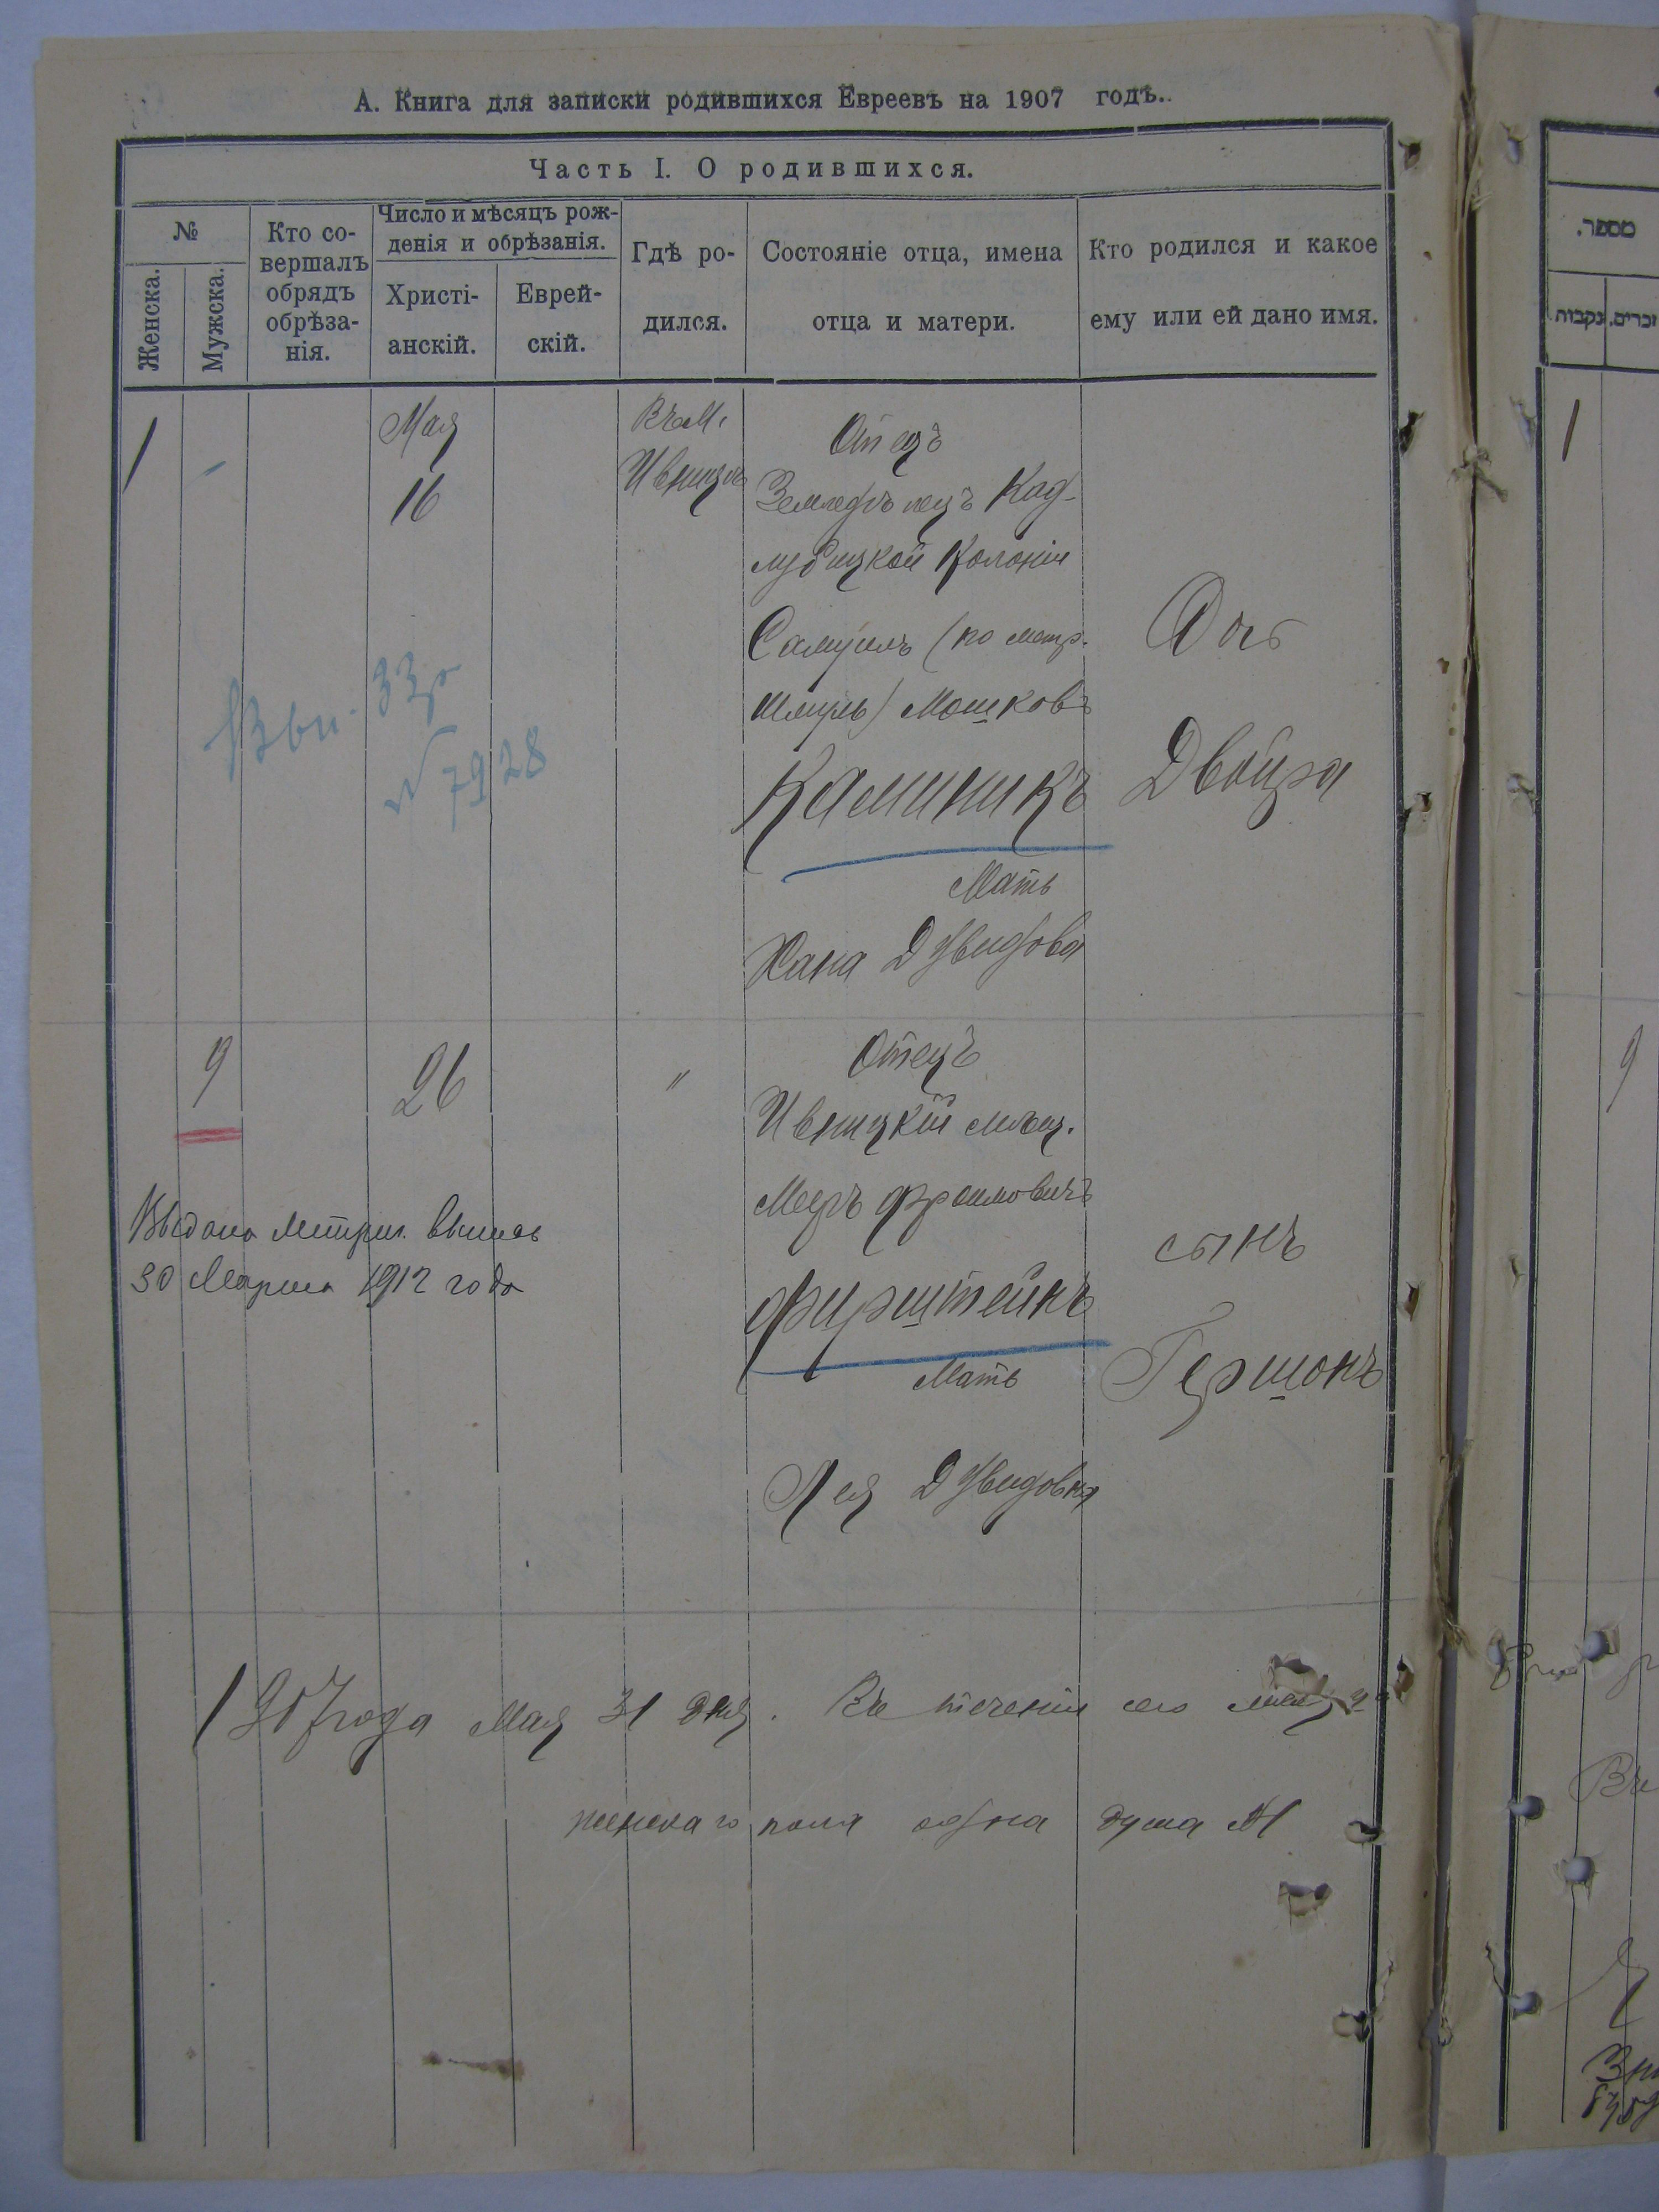 А. Книга для записки родившихся Евреевъ на 1907 годъ.
Часть I. О родившихся.
№
Женска.
Мужска.
Кто со-
вершалъ
обрядъ
обрѣза-
нія.
Число и мѣсяцъ рож-
денія и обрѣзанія.
Христі-
анскій.
Еврей-
скій.
Гдѣ ро-
дился.
Состояніе отца, имена
отца и матери.
Кто родился и какое
ему или ей дано имя.
1
Мая
16
Въ М.
Ивницѣ
Отецъ
Земледѣлецъ Кад-
лубицкой Колоніи
Самуилъ (по метр.
Шмуль) Мошковъ
Каминикъ
Мать
Хана Двидова
Дочь
Двойра
№ 7928
9
26
"
Отецъ
Ивницкій мѣщ.
Мееръ Фроимовичъ
Фирштейнъ
Мать
Лея Двидовна
сынъ
Гершонъ
Выдана метрич. выпись
30 Марта 1912 года
1907 года Мая 31 дня. Въ теченіи сего
женскаго пола одна душа
מספר.
נקבות
זכרים
1
9